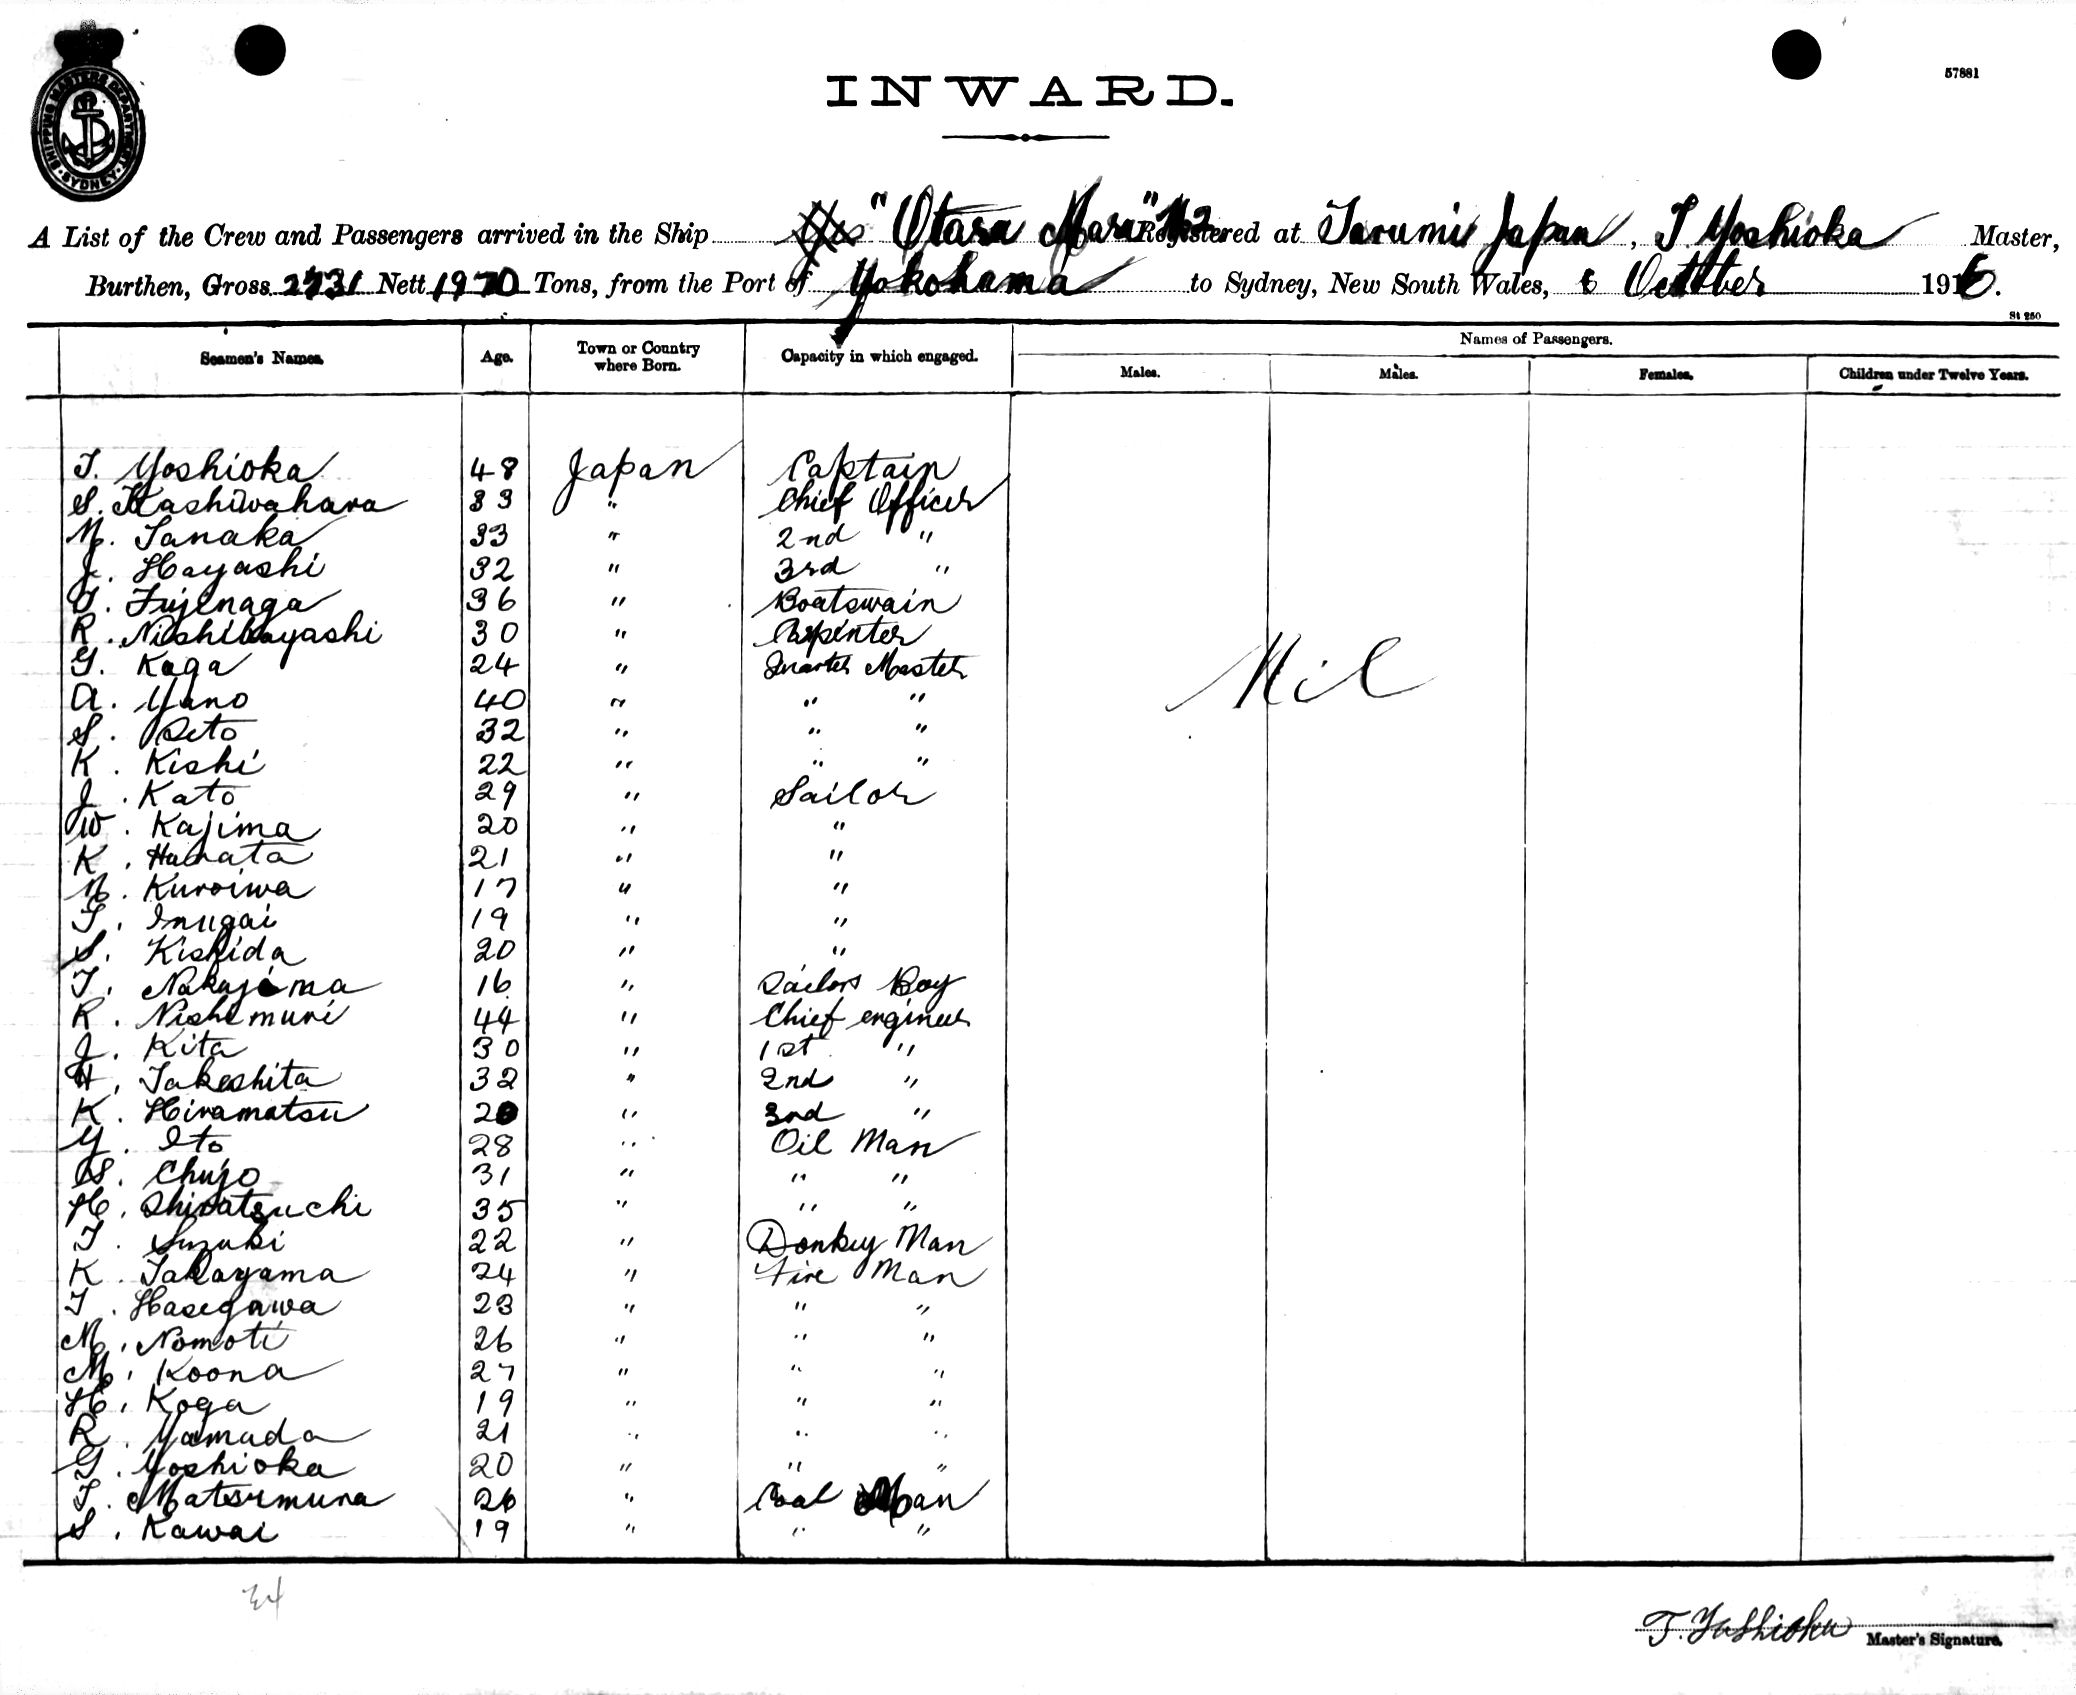 SHIPPING MASTERS DEPARTMENT SYDNEY
57881
INWARD.
A List of the Crew and Passengers arrived in the Ship "Otaru Maru" No 2 Registered at Tarumi Japan, T Yoshioka Master,
Burthen, Gross 2731 Nett 1970 Tons, from the Port of Yokohama to Sydney, New South Wales, 6 October 1916.
St 250
Seamen's Names. Age. Town or Country where Born. Capacity in which engaged. Names of Passengers.
Males. Males. Females. Children under Twelve Years.
T. Yoshioka 48 Japan Captain
S. Kashiwahara 33 " Chief Officer
N. Tanaka 33 " 2nd "
J. Hayashi 32 " 3rd "
T. Fujinaga 36 " Boatswain
R. Nishibayashi 30 " Carpenter
G. Koga 24 " Quarter Master
A. Yano 40 " " "
S. Seto 32 " " "
K. Kishi 22 " " "
J. Kato 29 " Sailor
W. Kajima 20 " "
K. Hanata 21 " "
N. Kuroiwa 17 " "
T. Inugai 19 " "
S. Kishida 20 " "
T. Nakajima 16 " Sailors Boy
R. Nishimuri 44 " Chief engineer
J. Kita 30 " 1st "
H. Takeshita 32 " 2nd "
K. Hiramatsu 20 " 3rd "
Y. Ito 28 " Oil Man
S. Chujo 31 " " "
H. Shiratsuchi 35 " " "
T. Suzuki 22 " Donkey Man
K. Takayama 24 " Fire Man
T. Hasegawa 23 " " "
M. Nomoti 26 " " "
M. Koona 27 " " "
H. Koga 19 " " "
R. Yamada 21 " " "
G. Yoshioka 20 " " "
T. Matsumura 26 " Coal Man
S. Kawai 19 " " "
Nil
34
T. Yoshioka Master's Signature.